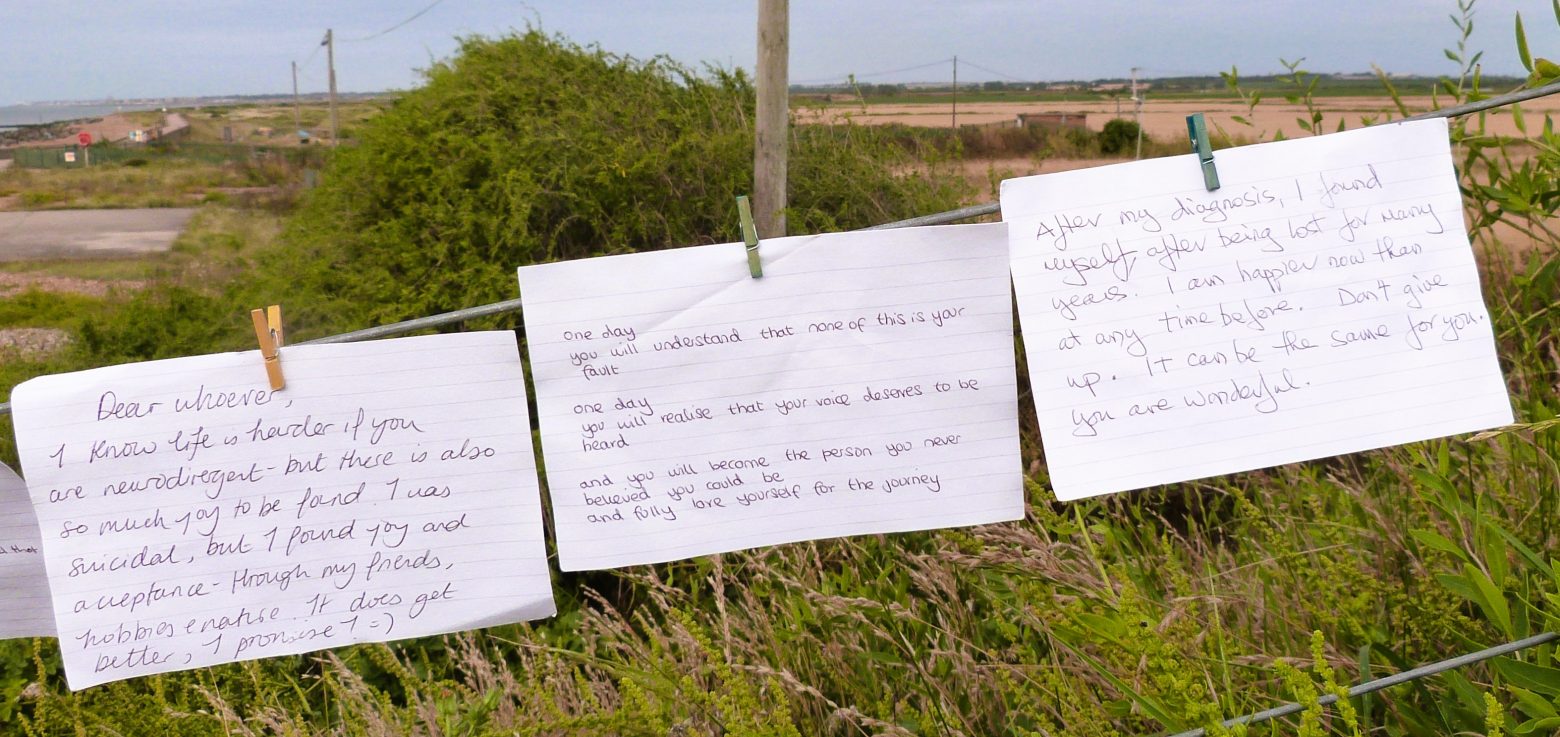 d that
Dear whoever,
I know life is harder if you
are neurodivergent - but there is also
so much joy to be found. I was
suicidal, but I found joy and
acceptance - through my friends,
hobbies & nature. It does get
better, I promise! =)
one day
you will understand that none of this is your
fault
one day
you will realise that your voice deserves to be
heard
and you will become the person you never
believed you could be
and fully love yourself for the journey
After my diagnosis, I found
myself, after being lost for many
years. I am happier now than
at any time before. Don't give
up. It can be the same for you.
You are wonderful.